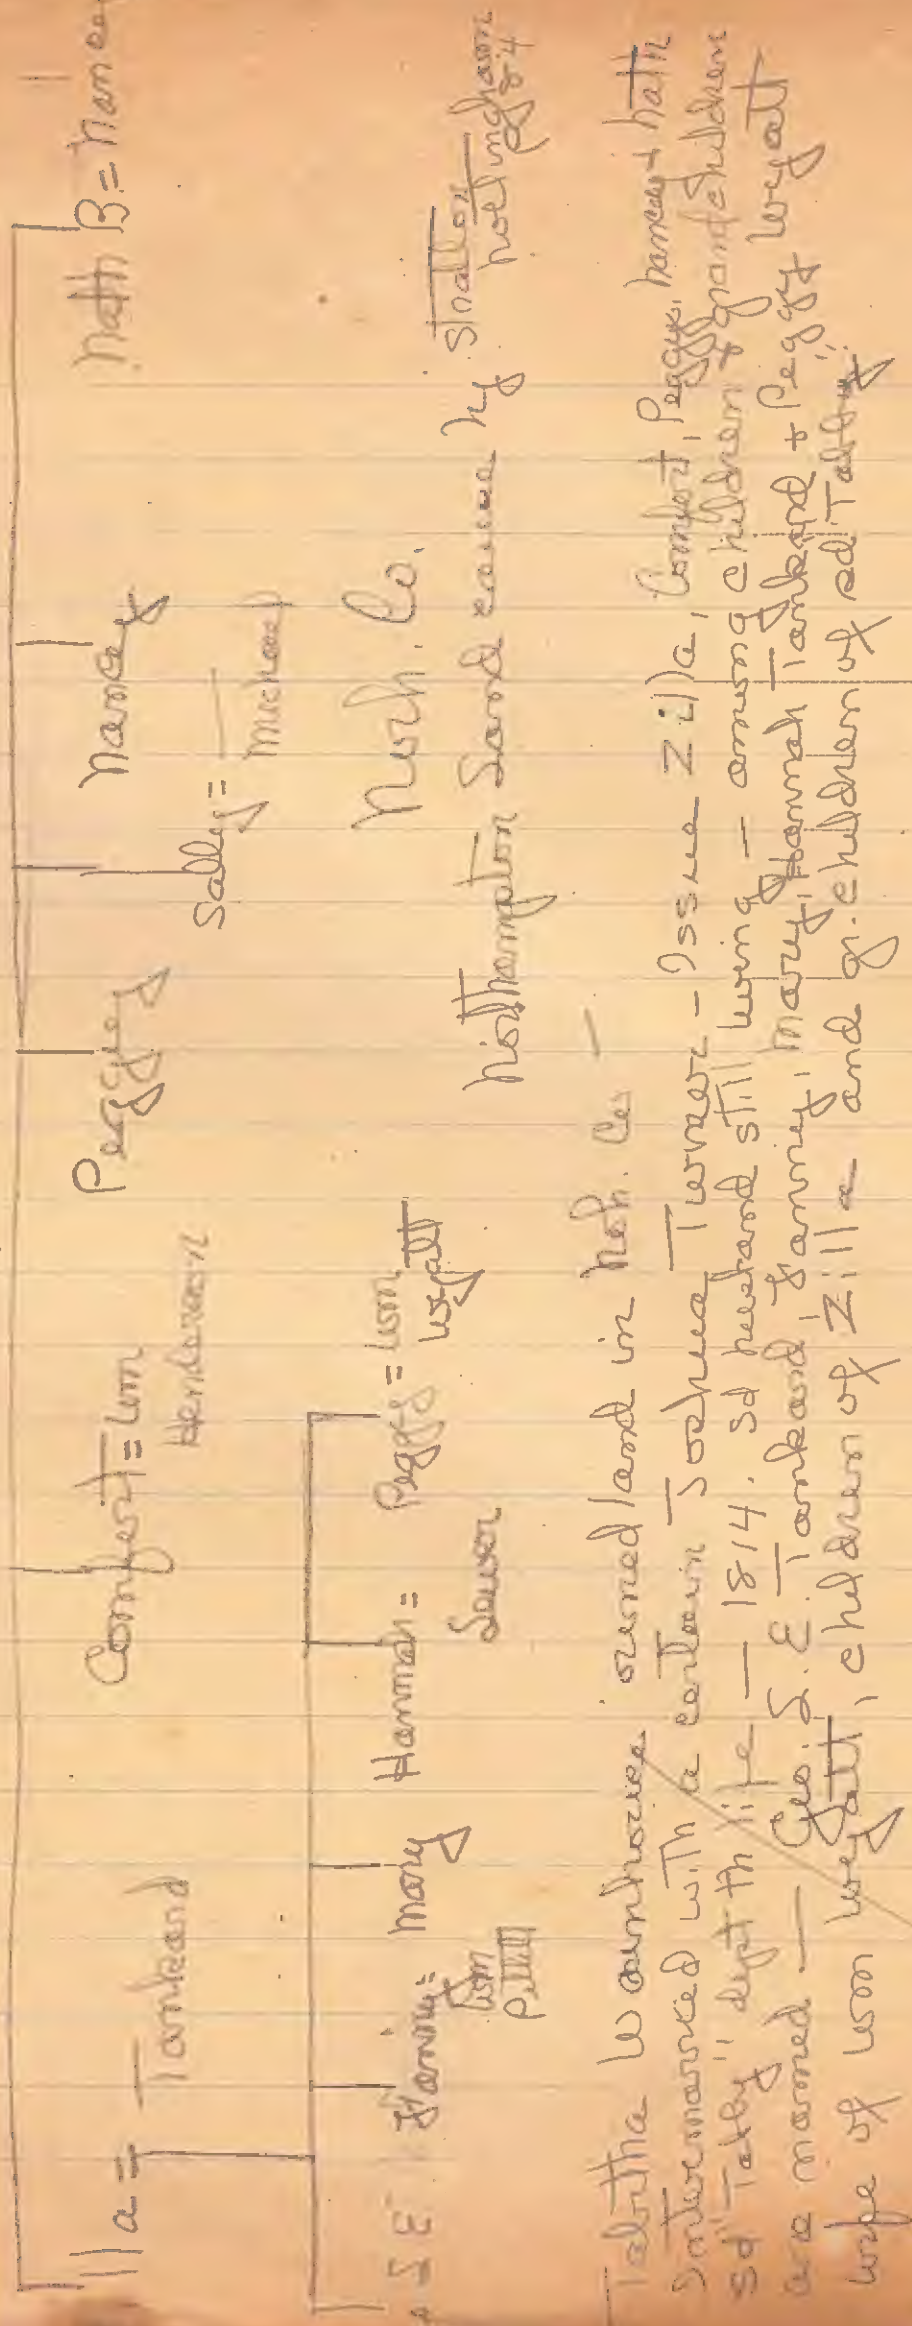 lla = Tankard Comfort = Wm Henderson Peggy Nancy Nath B = Nancy
Sally = Michael
S E Fanny = Wm Pettitt Mary Hannah = Peggy = Wm Wyatt
Norh. Co.
Northampton Land cause by Stratton Nottingham
84
Tabitha owned land in Noh. Co —
Intermarried with a certain Joshua Turner - Issue Zilla, Comfort, Peggy, Nancy + Nath
sd "Tabby" dept th life — 1814. sd husband still living — among children + grandchildren
are named — Geo. S. E Tankard, Fanny, Mary, Hannah Tankard + Peggy Wyatt
wife of Wm Wyatt, children of Zilla and gr. children of sd Tabby"